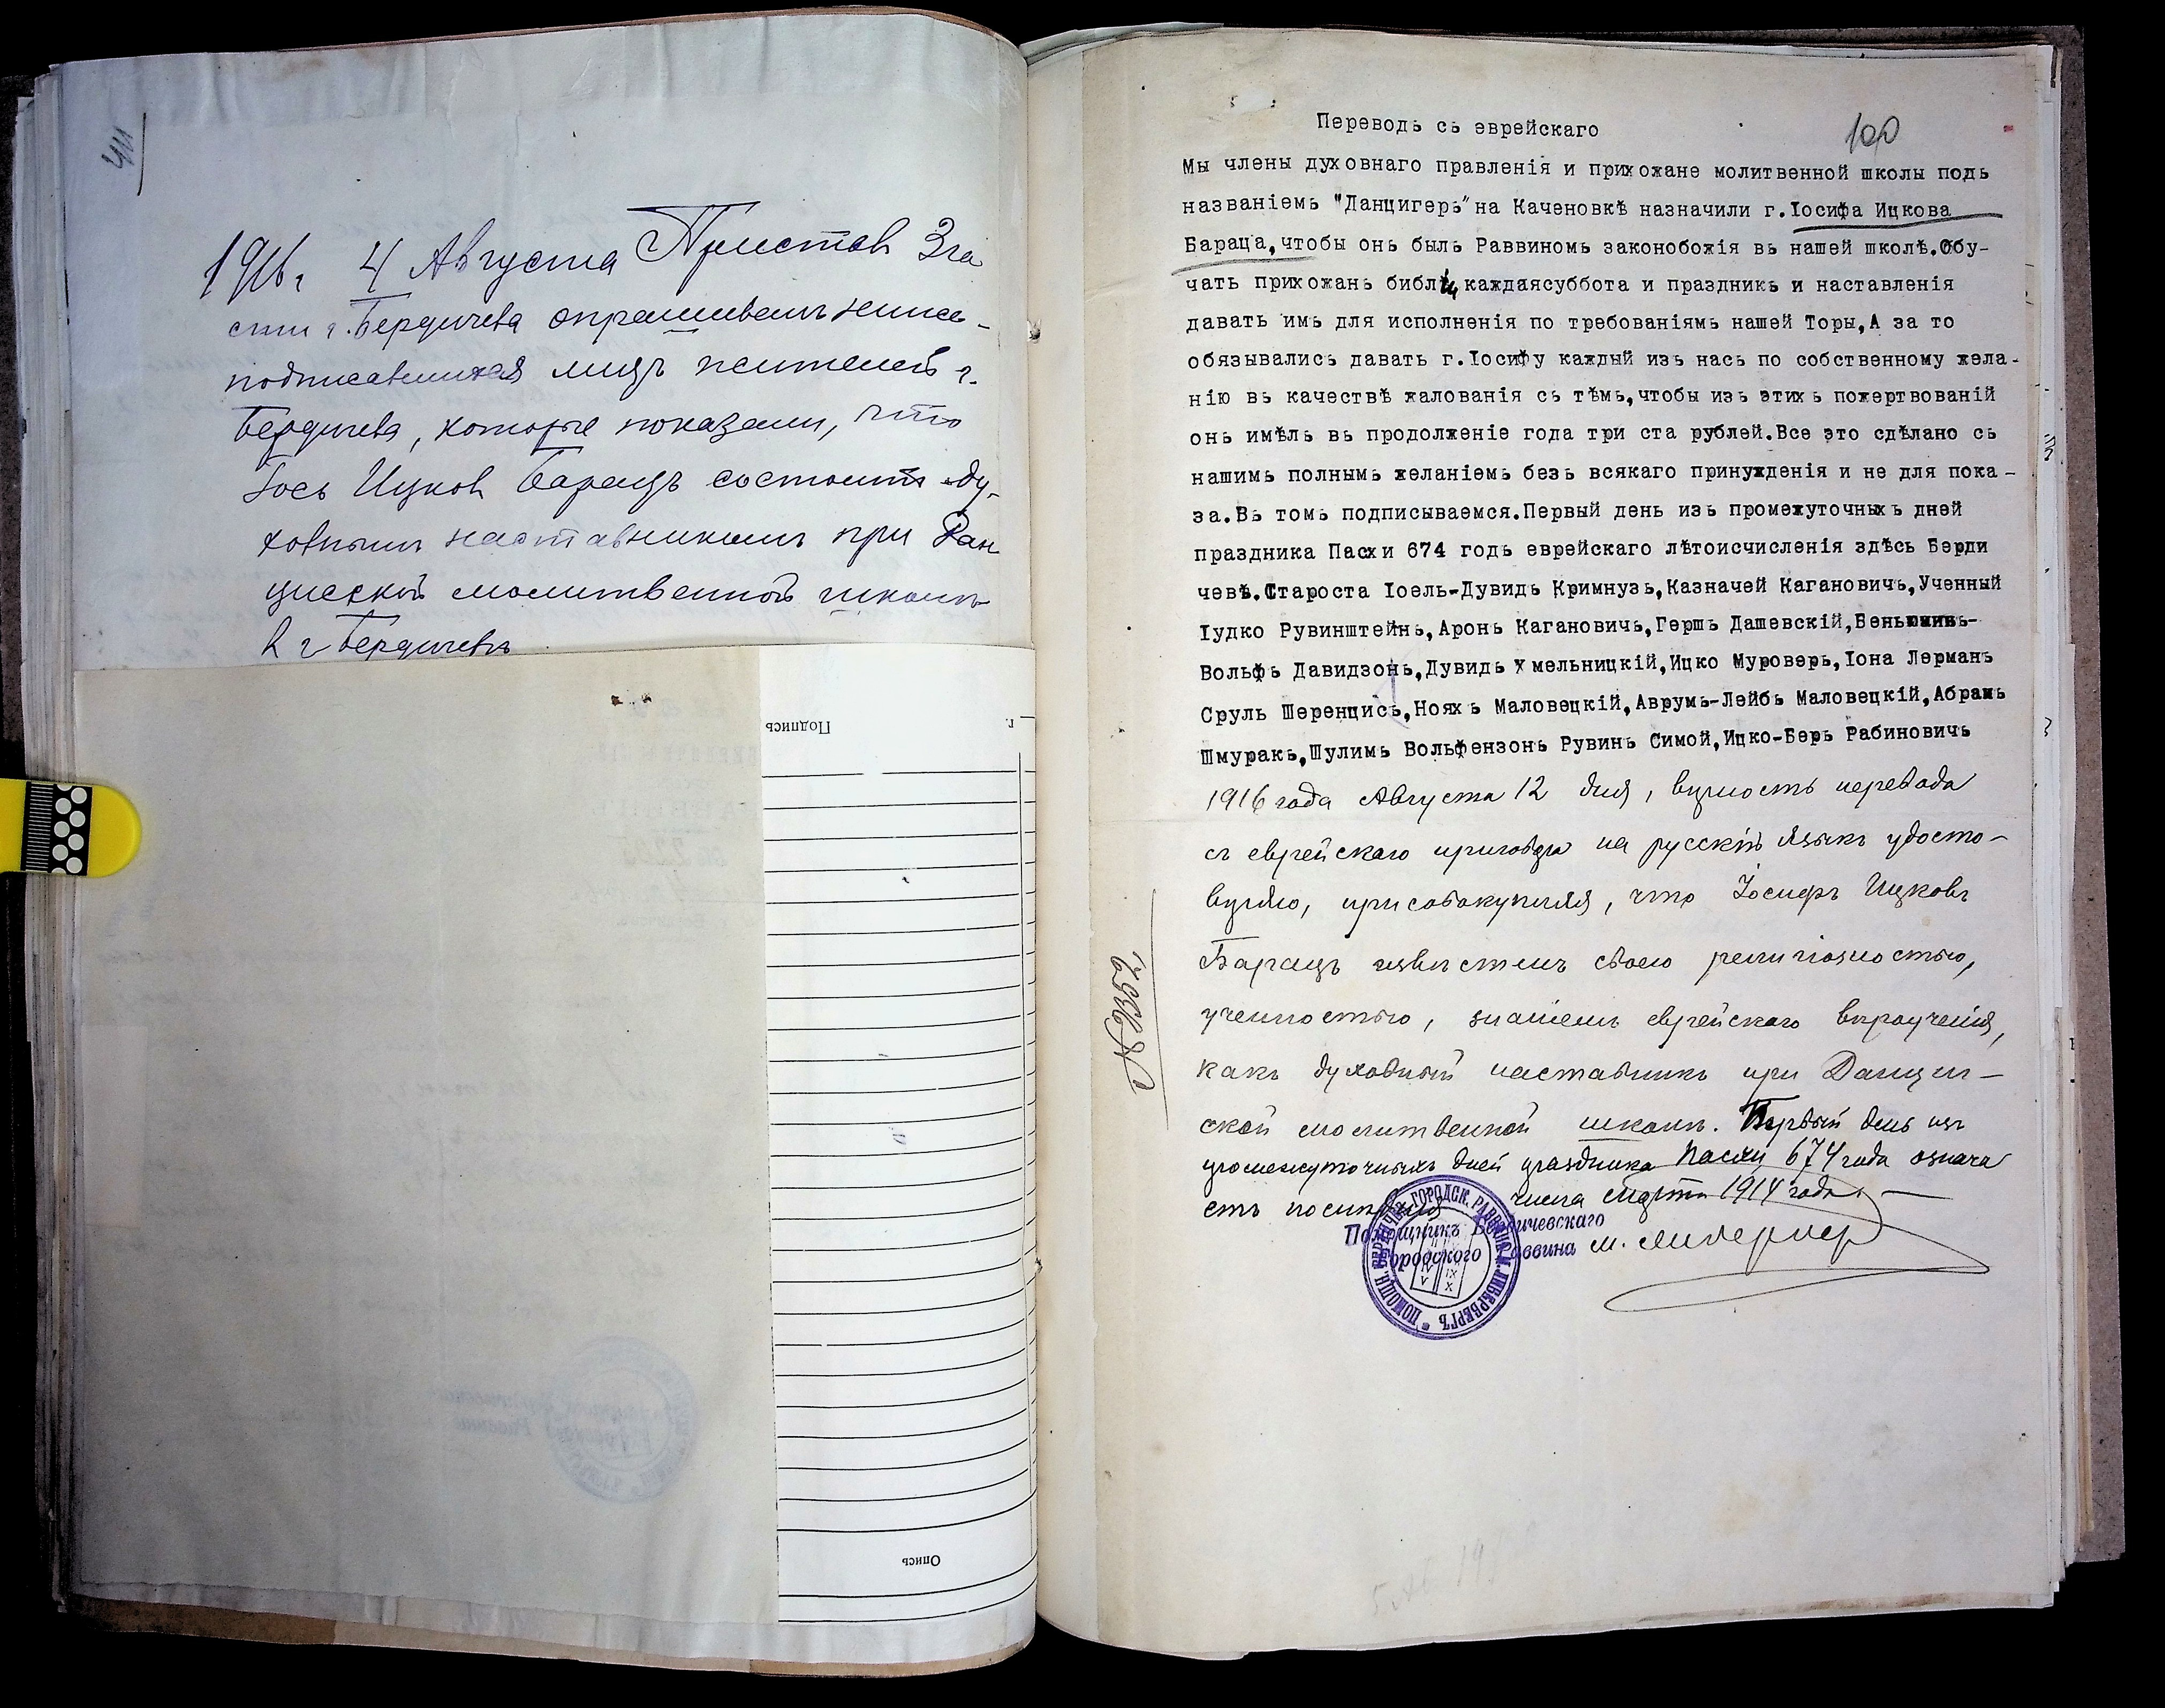 411
1916 г 4 Августа Пристав 3 ча
сти г. Бердичева опрашивал ниже-
подписавшихся лиц жителей г.
Бердичева, которые показали, что
Іось Ицков Барацъ состоитъ ду-
ховным наставником при Дан
цигской молитвенной школѣ
в г Бердичевѣ
Подпись
г.
Опись
100
Переводь сь еврейскаго
Мы члены духовнаго правленія и прихожане молитвенной школы подь
названіемь "Данцигерь" на Каченовкѣ назначили г.Іосифа Ицкова
Бараца,чтобы онь быль Раввиномь законобожія вь нашей школѣ.Обу-
чать прихожань библіи каждаясуббота и праздникь и наставленія
давать имь для исполненія по требованіямь нашей Торы,А за то
обязывались давать г.Іосифу каждый изь нась по собственному жела-
нію вь качествѣ жалованія сь тѣмь,чтобы изь этихь пожертвованій
онь имѣль вь продолженіе года три ста рублей.Все это сдѣлано сь
нашимь полнымь желаніемь безь всякаго принужденія и не для пока-
за.Вь томь подписываемся.Первый день изь промежуточныхь дней
праздника Пасхи 674 годь еврейскаго лѣтоисчисленія здѣсь Берди
чевѣ.Староста Іоель-Дувидь Кримнузь,Казначей Кагановичь,Ученный
Іудко Рувинштейнь,Аронь Кагановичь,Гершь Дашевскій,Веньюминь-
Вольфь Давидзонь,Дувидь Хмельницкій,Ицко Муроверь,Іона Лермань
Сруль Шеренцись,Нояхь Маловецкій,Аврумь-Лейбь Маловецкій,Абрамь
Шмуракь,Шулимь Вольфензонь Рувинь Симой,Ицко-Берь Рабиновичь
1916 года Августа 12 дня, вѣрность перевода
съ еврейскаго приговора на русскій языкъ удосто-
вѣряю, присовокупляя, что Іосифъ Ицковъ
Барацъ извѣстенъ своею религіозностью,
ученностью, знаніемъ еврейскаго вѣроученія,
какъ духовный наставникъ при Данциг-
ской молитвенной школѣ. Первый день изъ
промежуточныхъ дней праздника Пасхи 674 года означа
етъ числа Марта 1914 года.
Помощникъ Бердичевскаго
Городского Раввина М. Ливерберг
ПОМОЩН. БЕРДИЧЕВ. ГОРОДСК. РАВВИНА М. ЛИВЕРБЕРГЪ
№ 2352